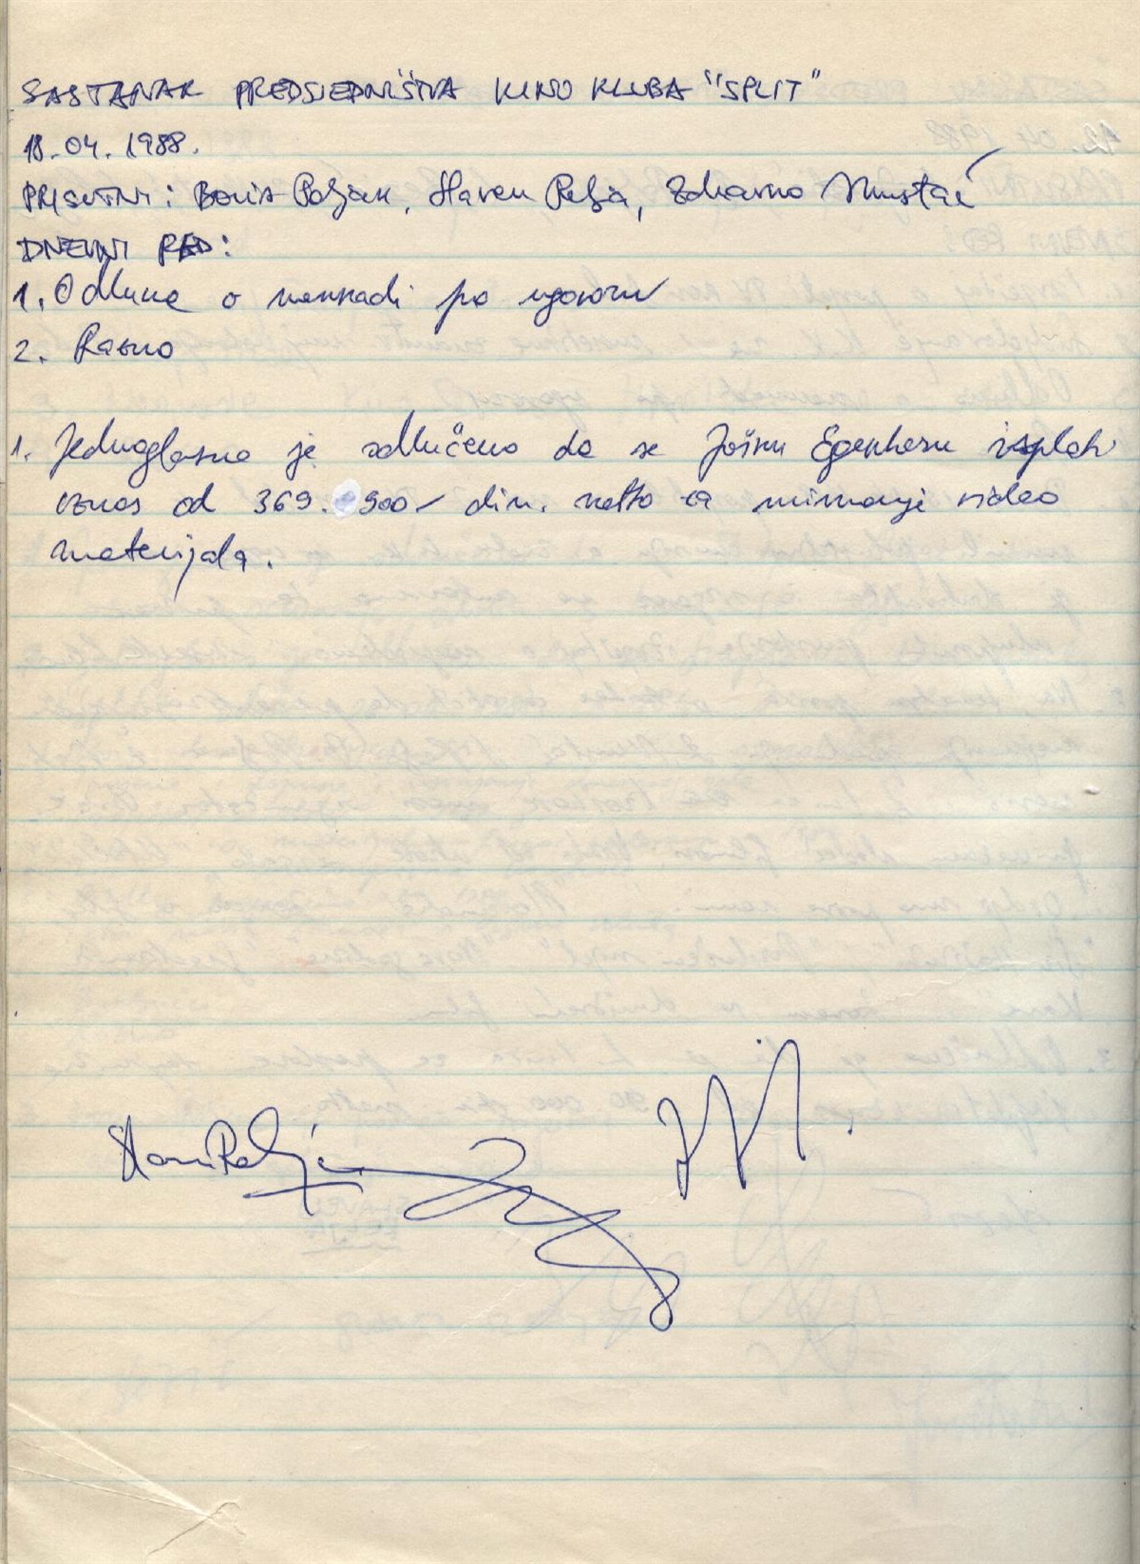 SASTANAK PREDSJEDNIŠTVA KINO KLUBA "SPLIT"
18.04.1988.
PRISUTNI: Boris Poljak, Slaven Relja, Zdravko Mustać
DNEVNI RED:
1. Odluka o naknadi po ugovoru
2. Razno
1. Jednoglasno je odlučeno da se Jošku Egenheru isplati
iznos od 369.900/ din. netto za snimanje video
materijala.